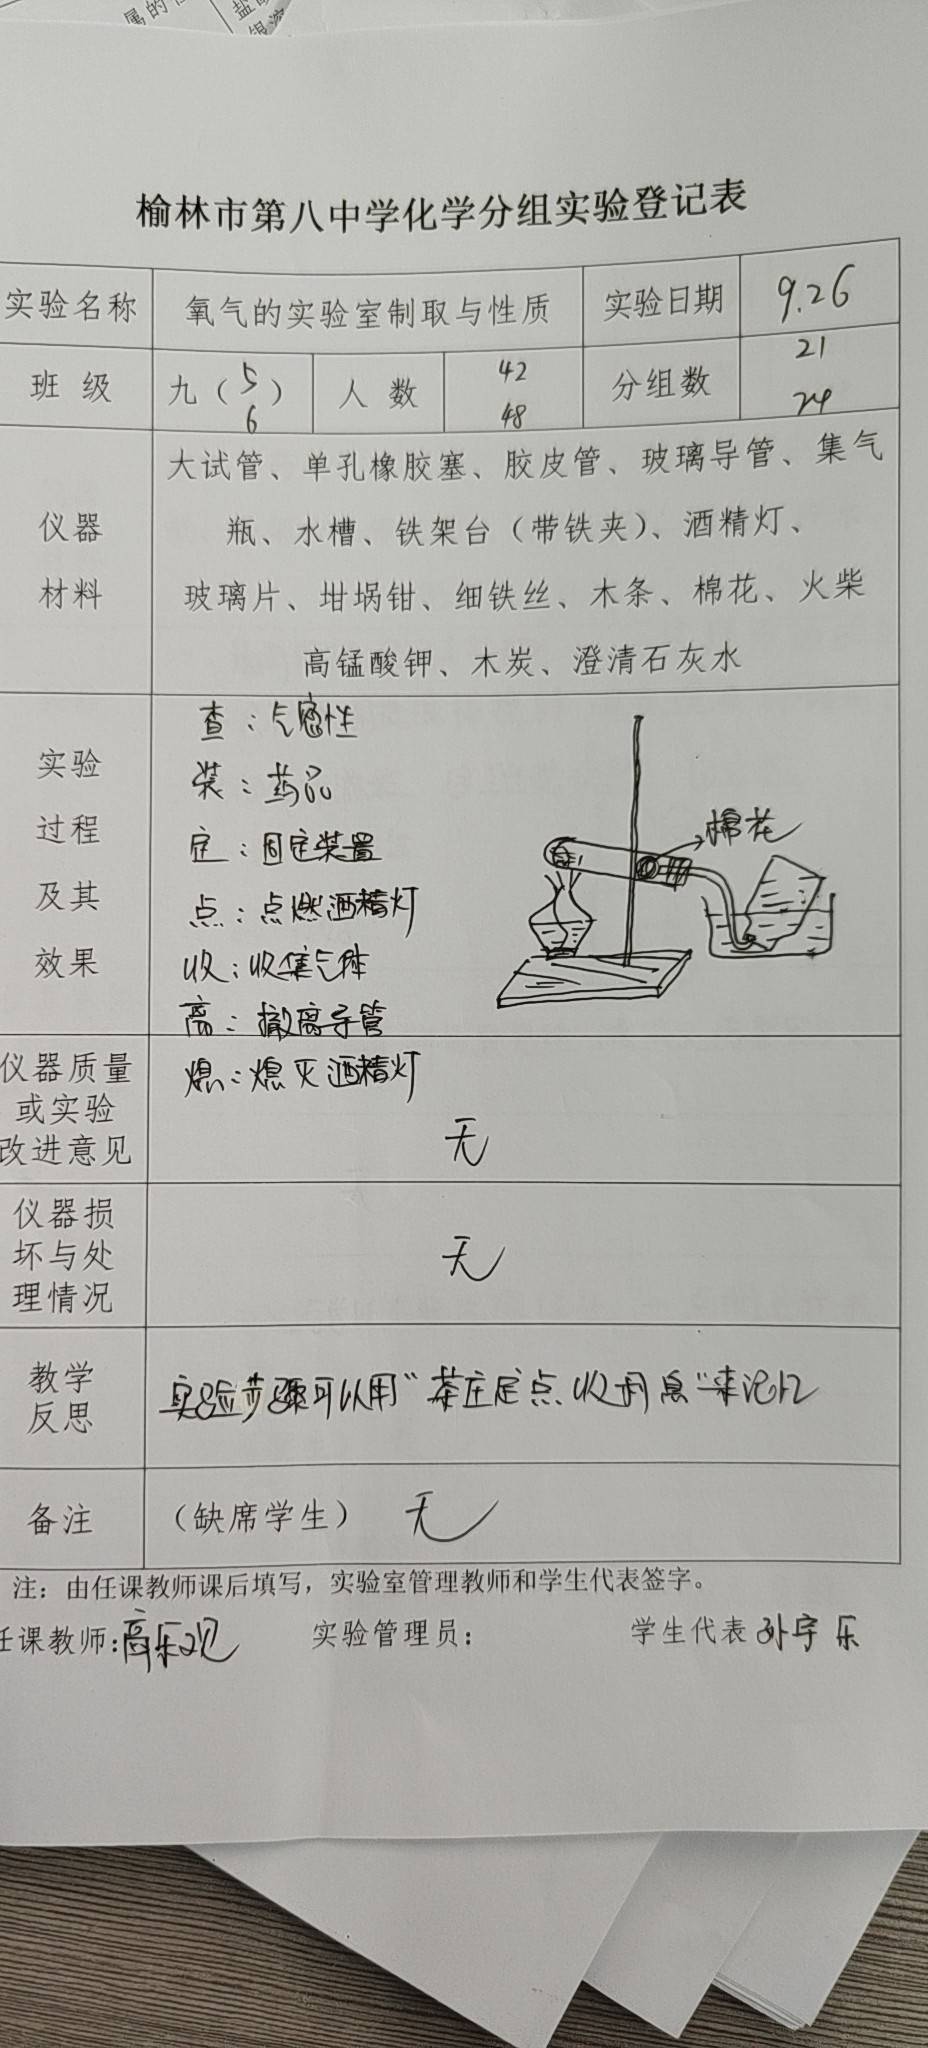 属的
盐
银溶
榆林市第八中学化学分组实验登记表
实验名称 氧气的实验室制取与性质 实验日期 9.26
班 级 九（5 6） 人 数 42 48 分组数 21 24
仪器材料
大试管、单孔橡胶塞、胶皮管、玻璃导管、集气
瓶、水槽、铁架台（带铁夹）、酒精灯、
玻璃片、坩埚钳、细铁丝、木条、棉花、火柴
高锰酸钾、木炭、澄清石灰水
实验
过程
及其
效果
查：气密性
装：药品
定：固定装置
点：点燃酒精灯
收：收集气体
离：撤离导管
熄：熄灭酒精灯
棉花
仪器质量
或实验
改进意见
无
仪器损
坏与处
理情况
无
教学
反思
实验步骤可以用“茶庄定点收利息”来记忆
备注 （缺席学生） 无
注：由任课教师课后填写，实验室管理教师和学生代表签字。
任课教师：高乐观 实验管理员： 学生代表 孙宇乐